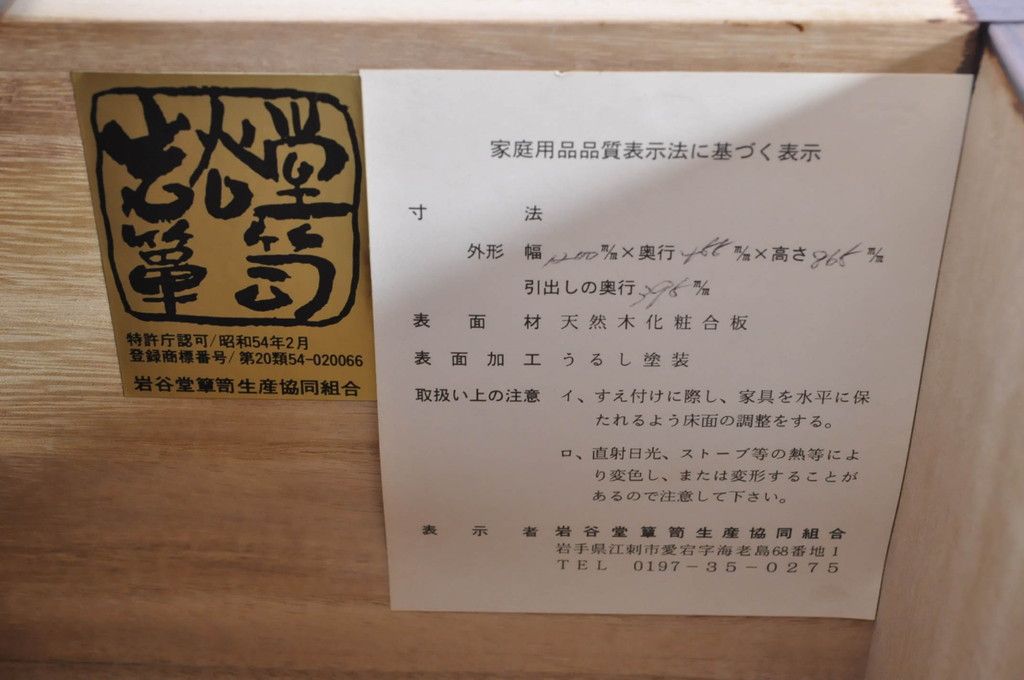 岩谷堂
簞笥
特許庁認可/昭和54年2月
登録商標番号/第20類54-020066
岩谷堂簞笥生産協同組合
家庭用品品質表示法に基づく表示
寸法
外形 幅1200m/m×奥行 m/m×高さ865m/m
引出しの奥行395m/m
表面材 天然木化粧合板
表面加工 うるし塗装
取扱い上の注意 イ、すえ付けに際し、家具を水平に保
たれるよう床面の調整をする。
ロ、直射日光、ストーブ等の熱等によ
り変色し、または変形することが
あるので注意して下さい。
表示者 岩谷堂簞笥生産協同組合
岩手県江刺市愛宕字海老島68番地1
TEL 0197-35-0275